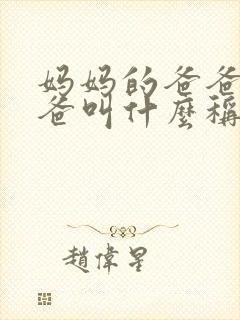 妈妈的爸爸
爸叫什麼稱
趙偉星